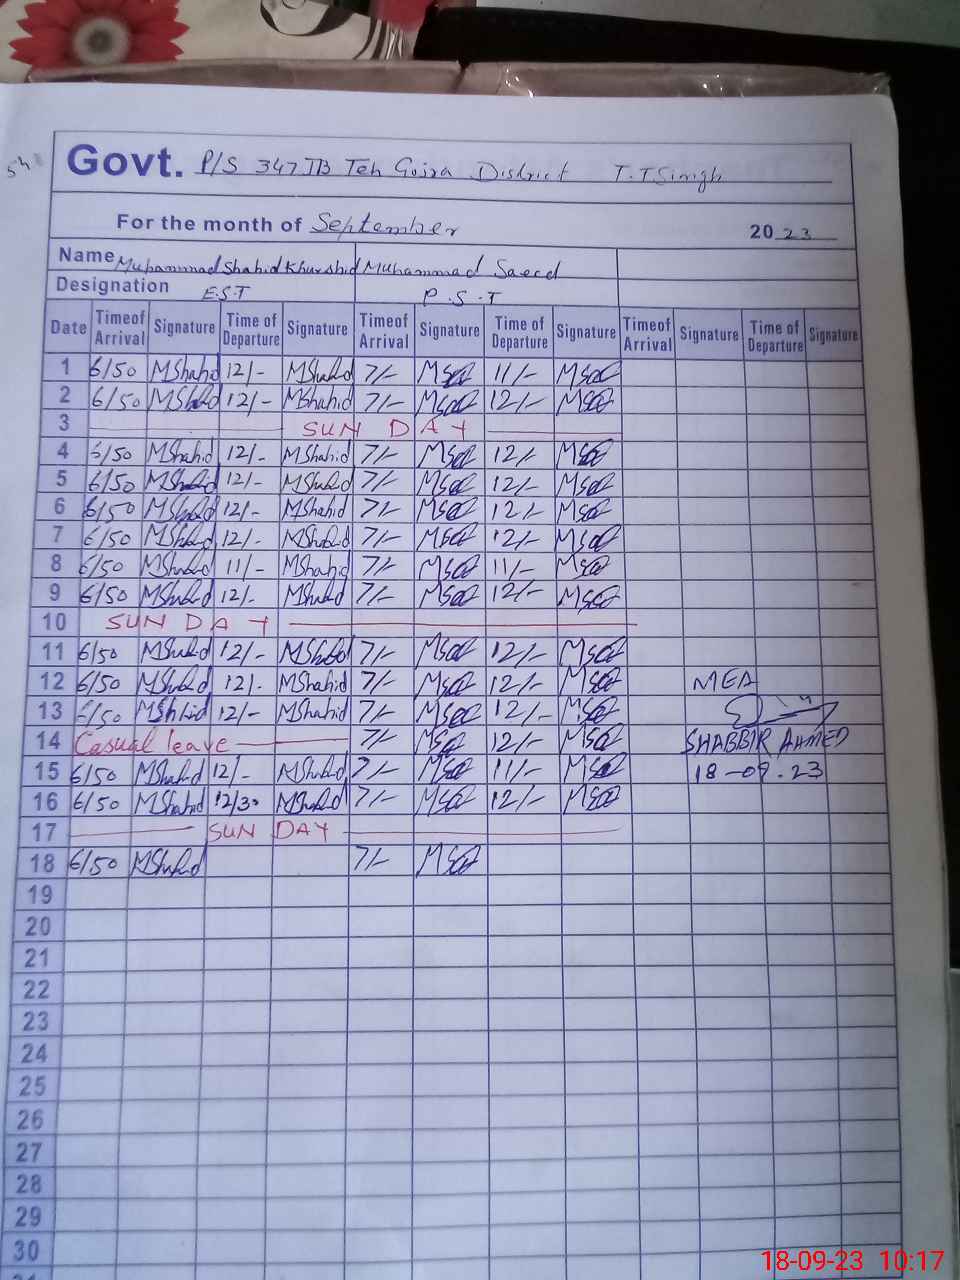 Govt. P/S 347 JB Teh Gojra District T.T Singh
For the month of September 2023
Name Muhammad Shahid Khurshid Muhammad Saeed
Designation E.S.T P.S.T
Date Timeof Arrival Signature Time of Departure Signature Timeof Arrival Signature Time of Departure Signature Timeof Arrival Signature Time of Departure Signature
1 6/50 MShahid 12/- MShahid 7/- 11/-
2 6/50 MShahid 12/- MShahid 7/- 12/-
3 SUN DAY
4 6/50 MShahid 12/- MShahid 7/- 12/-
5 6/50 MShahid 12/- MShahid 7/- 12/-
6 6/50 MShahid 12/- MShahid 7/- 12/-
7 6/50 MShahid 12/- MShahid 7/- 12/-
8 6/50 MShahid 11/- MShahid 7/- 11/-
9 6/50 MShahid 12/- MShahid 7/- 12/-
10 SUN DAY
11 6/50 MShahid 12/- MShahid 7/- 12/-
12 6/50 MShahid 12/- MShahid 7/- 12/- MEA
13 6/50 MShahid 12/- MShahid 7/- 12/-
14 Casual leave 7/- 12/- SHABBIR AHMED
15 6/50 MShahid 12/- MShahid 7/- 11/- 18-09.23
16 6/50 MShahid 12/30 MShahid 7/- 12/-
17 SUN DAY
18 6/50 MShahid 7/-
19
20
21
22
23
24
25
26
27
28
29
30
18-09-23 10:17